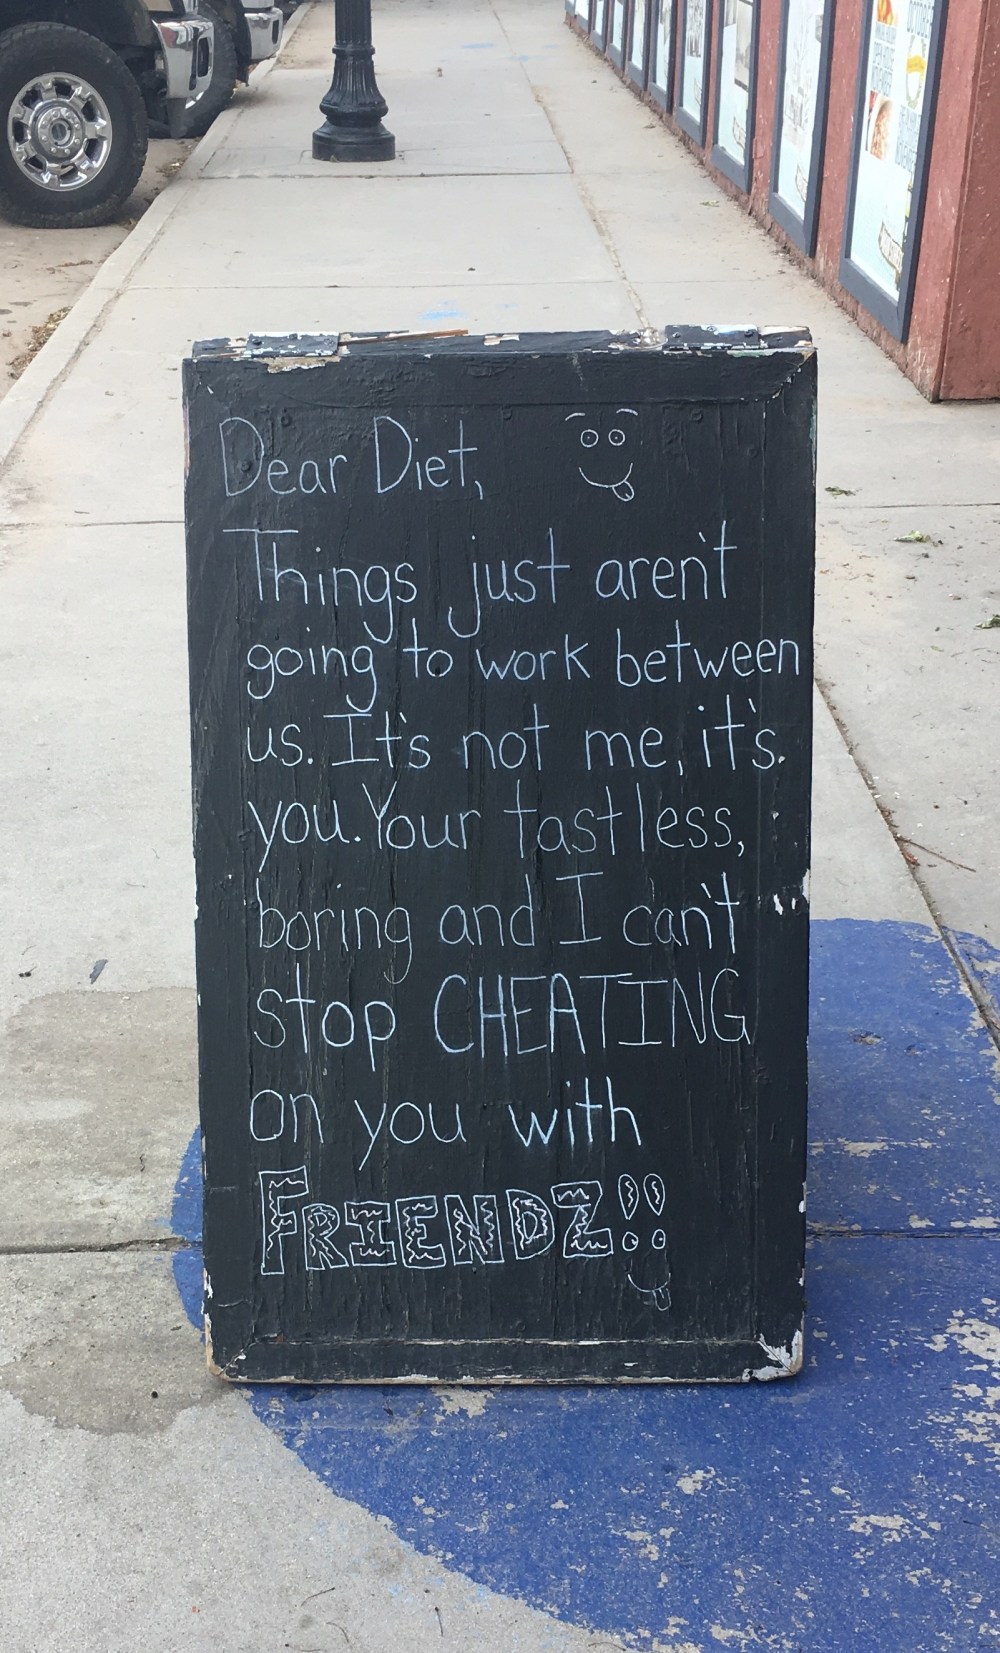 Dear Diet,
Things just aren't
going to work between
us. It's not me, it's.
you. Your tastless,
boring and I can't
stop CHEATING
on you with
FRIENDZ!!